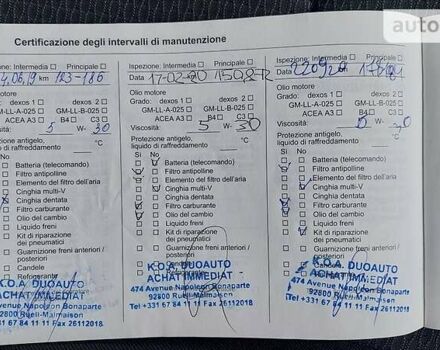 auto
Certificazione degli intervalli di manutenzione
Ispezione: Intermedia Principale
4.06.19 km 123-186
Olio motore
Grado: dexos 1 dexos 2
GM-LL-A-025 GM-LL-B-025
ACEA A3 B4 C3
Viscosità: 5 W- 30
Protezione antigelo, °C
liquido di raffreddamento
Si No
Batteria (telecomando)
Filtro antipolline
Elemento del filtro dell'aria
Cinghia multi-V
Cinghia dentata
Filtro carburante
Olio del cambio
Liquido freni
Kit di riparazione
dei pneumatici
Guarnizione freni anteriori /
posteriori
Candele
Refrigerante
K.O.A. DUOAUTO
ACHAT IMMEDIAT
474 Avenue Napoleon Bonaparte
92800 Rueil-Malmaison
Tel +331 67 84 11 11 Fax 26112018
Ispezione: Intermedia Principale
Data 17-02-20
Olio motore
Grado: dexos 1 dexos 2
GM-LL-A-025 GM-LL-B-025
ACEA A3 B4 C3
Viscosità: 5 W- 30
Protezione antigelo, °C
liquido di raffreddamento
Si No
Batteria (telecomando)
Filtro antipolline
Elemento del filtro dell'aria
Cinghia multi-V
Cinghia dentata
Filtro carburante
Olio del cambio
Liquido freni
Kit di riparazione
dei pneumatici
Guarnizione freni anteriori /
posteriori
K.O.A. DUOAUTO
ACHAT IMMEDIAT
474 Avenue Napoleon Bonaparte
92800 Rueil-Malmaison
Tel +331 67 84 11 11 Fax 26112018
Ispezione: Intermedia Principale
Data
Olio motore
Grado: dexos 1 dexos 2
GM-LL-A-025 GM-LL-B-025
ACEA A3 B4 C3
Viscosità: W-
Protezione antigelo, °C
liquido di raffreddamento
Si No
Batteria (telecomando)
Filtro antipolline
Elemento del filtro dell'aria
Cinghia multi-V
Cinghia dentata
Filtro carburante
Olio del cambio
Liquido freni
Kit di riparazione
dei pneumatici
Guarnizione freni anteriori /
posteriori
K.O.A. DUOAUTO
ACHAT IMMEDIAT
474 Avenue Napoleon Bonaparte
92800 Rueil-Malmaison
Tel +331 67 84 11 11 Fax 26112018